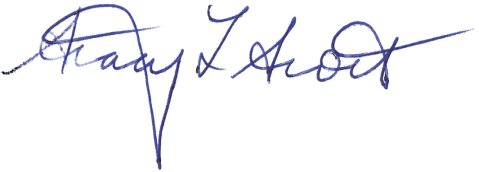 Tracy L Scott